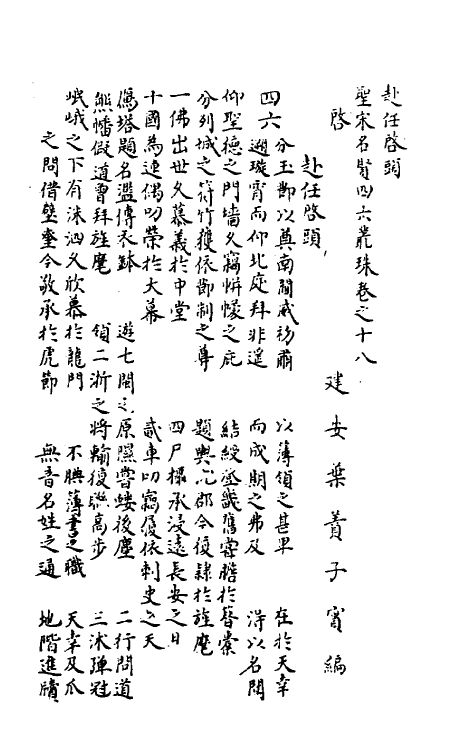 赴任啓頭
聖宋名賢四六叢珠卷之十八
建安葉蕡子實編
啓
赴任啓頭
四六 分玉節以奠南閩威初肅 以簿領之甚卑 在於天幸
遡璇霄而仰北庭拜非遥 而成期之弗及 得以名聞
仰聖德之門墻久竊帡幪之庇 結綬丞畿舊嘗瞻於晳棠
分列城之符竹獲依節制之尊 題輿 郡今復隸於旌麾
一佛出世久慕義於中堂 四尸 承浸遠長安之日
十國為連偶叨榮於大幕 貳車叨竊復依刺史之天
鴈塔題名濫傳衣鉢 遊七閩之原隰嘗 後塵 二行問道
熊幡假道曽拜旌麾 領二浙之將輸復 高步 三沐彈冠
岷峨之下有洙泗久欣慕於龍門 不腆簿書之職 天幸及爪
之問借 今敬承於虎節 無音名姓之通 地階進牘